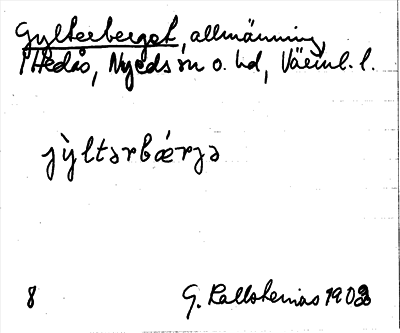 Gylterberget, allmänning
i Hedås, Nyeds sn o. hd, Värml. l.
jỳltərbǽrjə
8 G. Kallstenius 1903